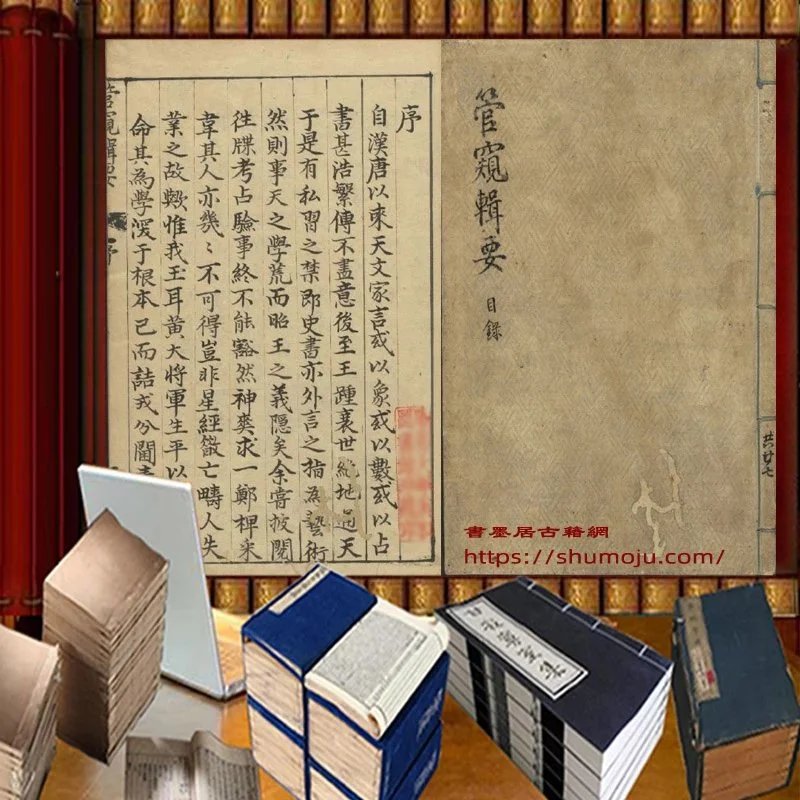 管窺輯要
目錄
共廿七
序
自漢唐以來天文家言或以象或以數或以占
書甚浩繁傳不盡意後至王踵襄世絕地通天
于是有私習之禁即史書亦外言之指為藝術
然則事天之學荒而昭王之義隱矣余嘗披閱
往牒考占驗事終不能豁然神爽求一鄭裨
韋其人亦幾〻不可得豈非星經散亡疇人失
業之故歟惟我玉耳黃大將軍生平以
命其為學深于根本已而詰戎分閫
管窺輯要
書墨居古籍網
https://shumoju.com/